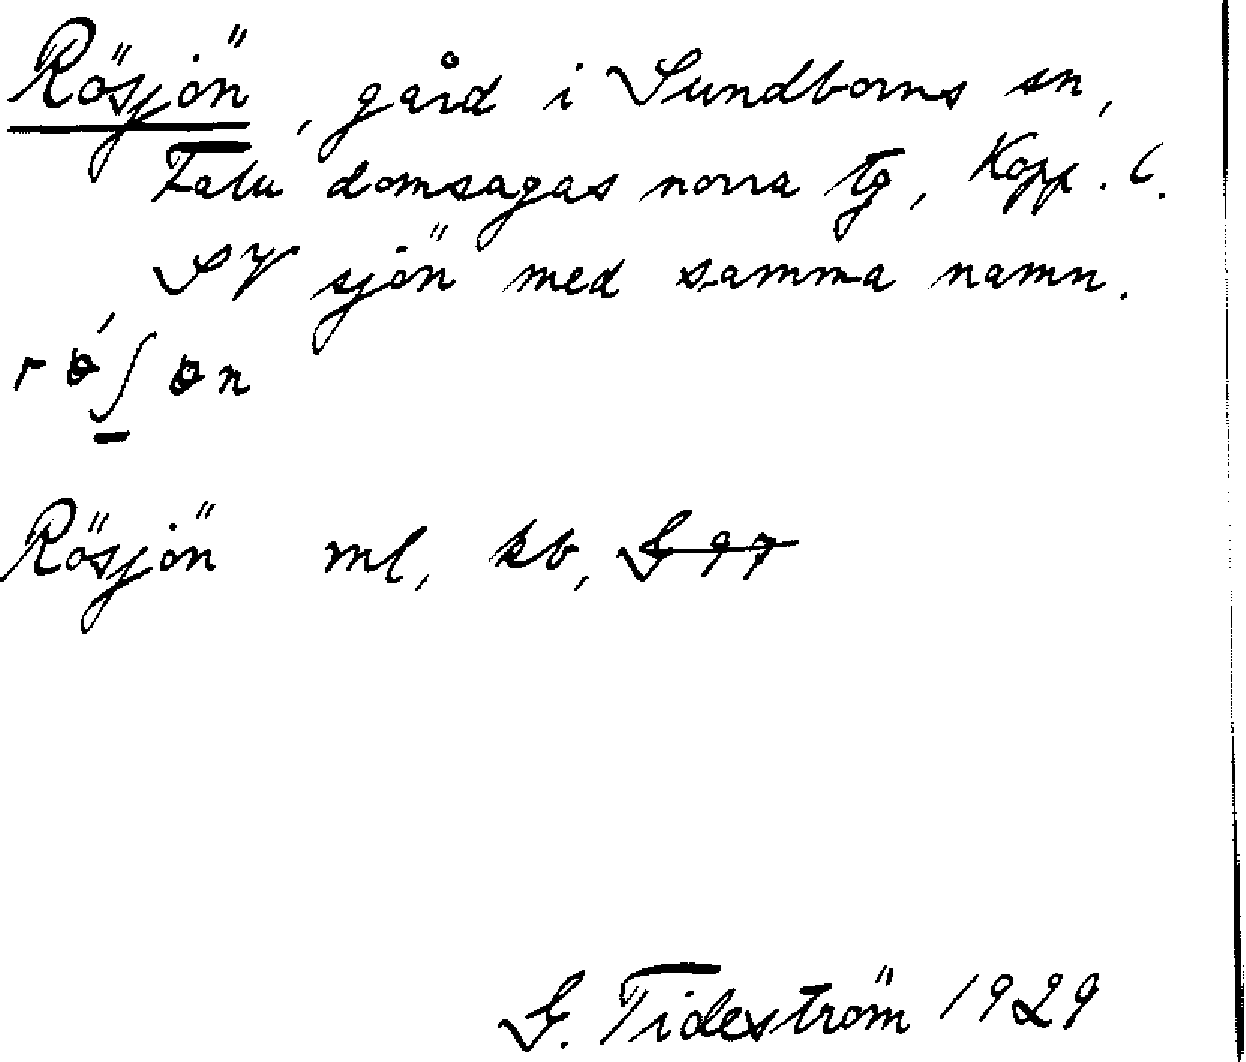 Rösjön, gård i Sundborns sn,
Falu domsagas norra tg, Kopp. l.
SV sjön med samma namn.
rɵ́ʃɵn
Rösjön ml, kb, G 97
G. Tideström 1929